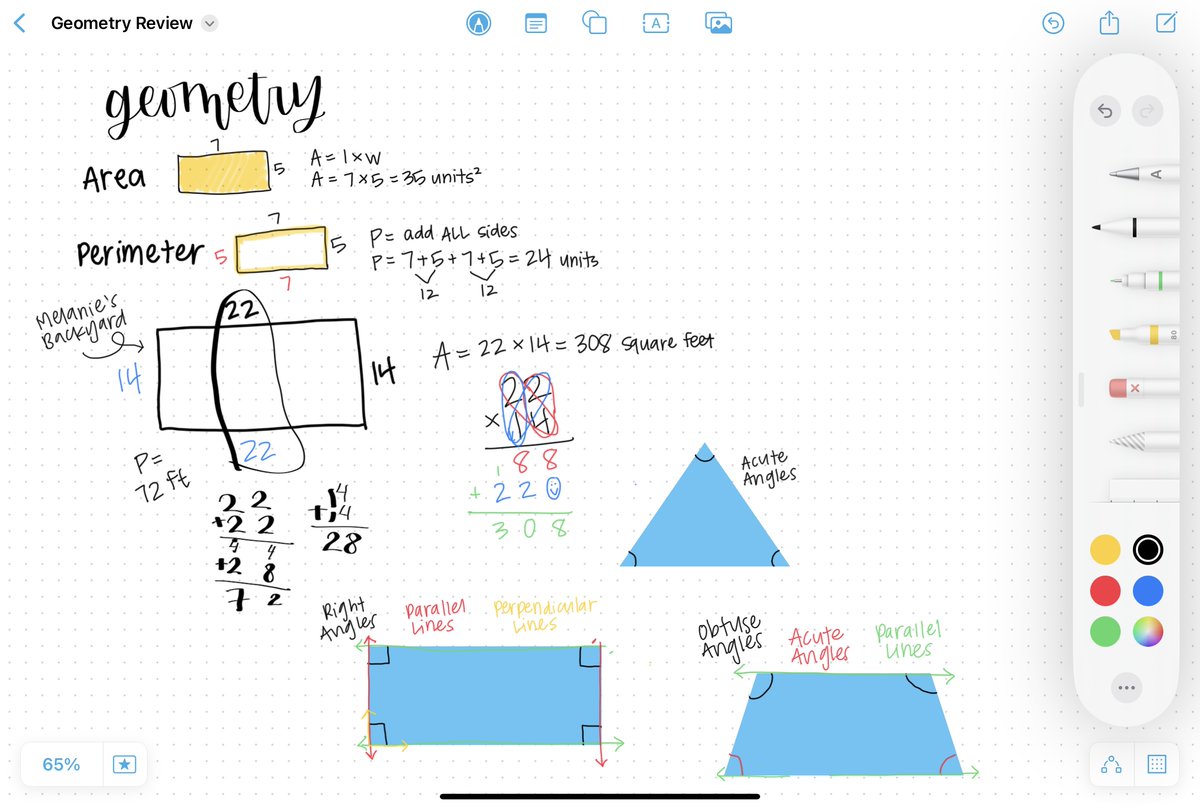 Geometry Review
A
geometry
Area
7
5
A = l x w
A = 7 x 5 = 35 units²
Perimeter
7
5
5
7
P= add ALL sides
P= 7+5+7+5 = 24 units
12 12
Melanie's
Backyard
22
14
14
22
P=
72 ft
22
+22
44
+28
72
14
+14
28
A = 22 x 14 = 308 square feet
22
x 14
1
88
+ 220
308
Acute
Angles
Right
Angles
Parallel
Lines
Perpendicular
Lines
Obtuse
Angles
Acute
Angles
Parallel
Lines
A
80
65%